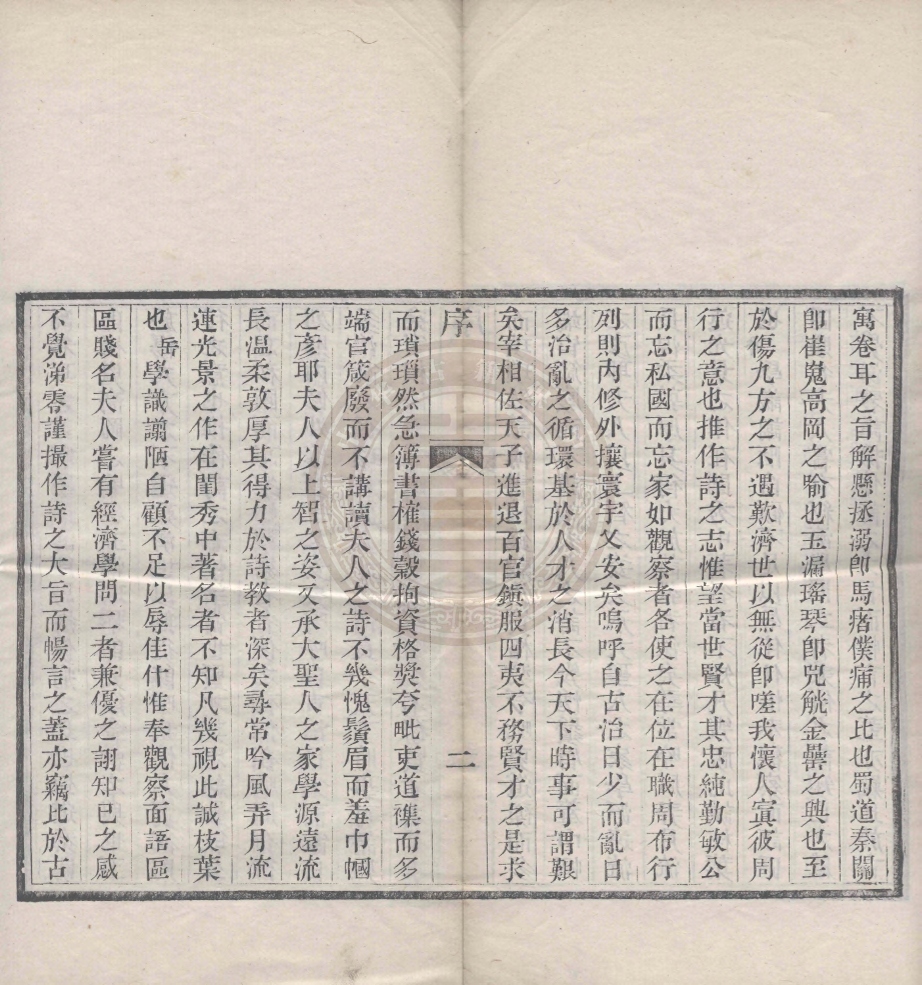 寓卷耳之旨解懸拯溺卽馬瘏僕痡之比也蜀道秦關
卽崔嵬高岡之喻也玉漏瑤琴卽兕觥金罍之興也至
於傷九方之不遇歎濟世以無從卽嗟我懷人寘彼周
行之意也推作詩之志惟望當世賢才其忠純勤敏公
而忘私國而忘家如觀察者各使之在位在職周布行
列則內修外攘寰宇乂安矣嗚呼自古治日少而亂日
多治亂之循環基於人才之消長今天下時事可謂艱
矣宰相佐天子進退百官鎭服四夷不務賢才之是求
序
二
而瑣瑣然急簿書榷錢穀拘資格獎夸毗吏道襍而多
端官箴廢而不講讀夫人之詩不幾愧鬚眉而羞巾幗
之彥耶夫人以上智之姿又承大聖人之家學源遠流
長溫柔敦厚其得力於詩教者深矣尋常吟風弄月流
連光景之作在閨秀中著名者不知凡幾視此誠枝葉
也岳學識謭陋自顧不足以辱佳什惟奉觀察面語區
區賤名夫人嘗有經濟學問二者兼優之詡知已之感
不覺涕零謹撮作詩之大旨而暢言之蓋亦竊比於古